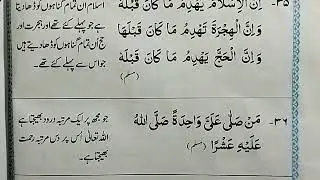 ۳۵- اِنَّ الْاِسْلَامَ يَهْدِمُ مَا كَانَ قَبْلَهٗ
وَاِنَّ الْهِجْرَةَ تَهْدِمُ مَا كَانَ قَبْلَهَا
وَاِنَّ الْحَجَّ يَهْدِمُ مَا كَانَ قَبْلَهٗ
(مسلم)
اسلام ان تمام گناہوں کو ڈھا دیتا
ہے جو پہلے کئے تھے اور ہجرت اور
حج ان تمام گناہوں کو ڈھا دیتے ہیں
جو اس سے پہلے کئے تھے۔
۳۶- مَنْ صَلّٰى عَلَيَّ وَاحِدَةً صَلَّى اللهُ
عَلَيْهِ عَشْرًا (مسلم)
جو مجھ پر ایک مرتبہ درود بھیجتا ہے
اللہ تعالیٰ اُس پر دس مرتبہ رحمت
بھیجتا ہے۔